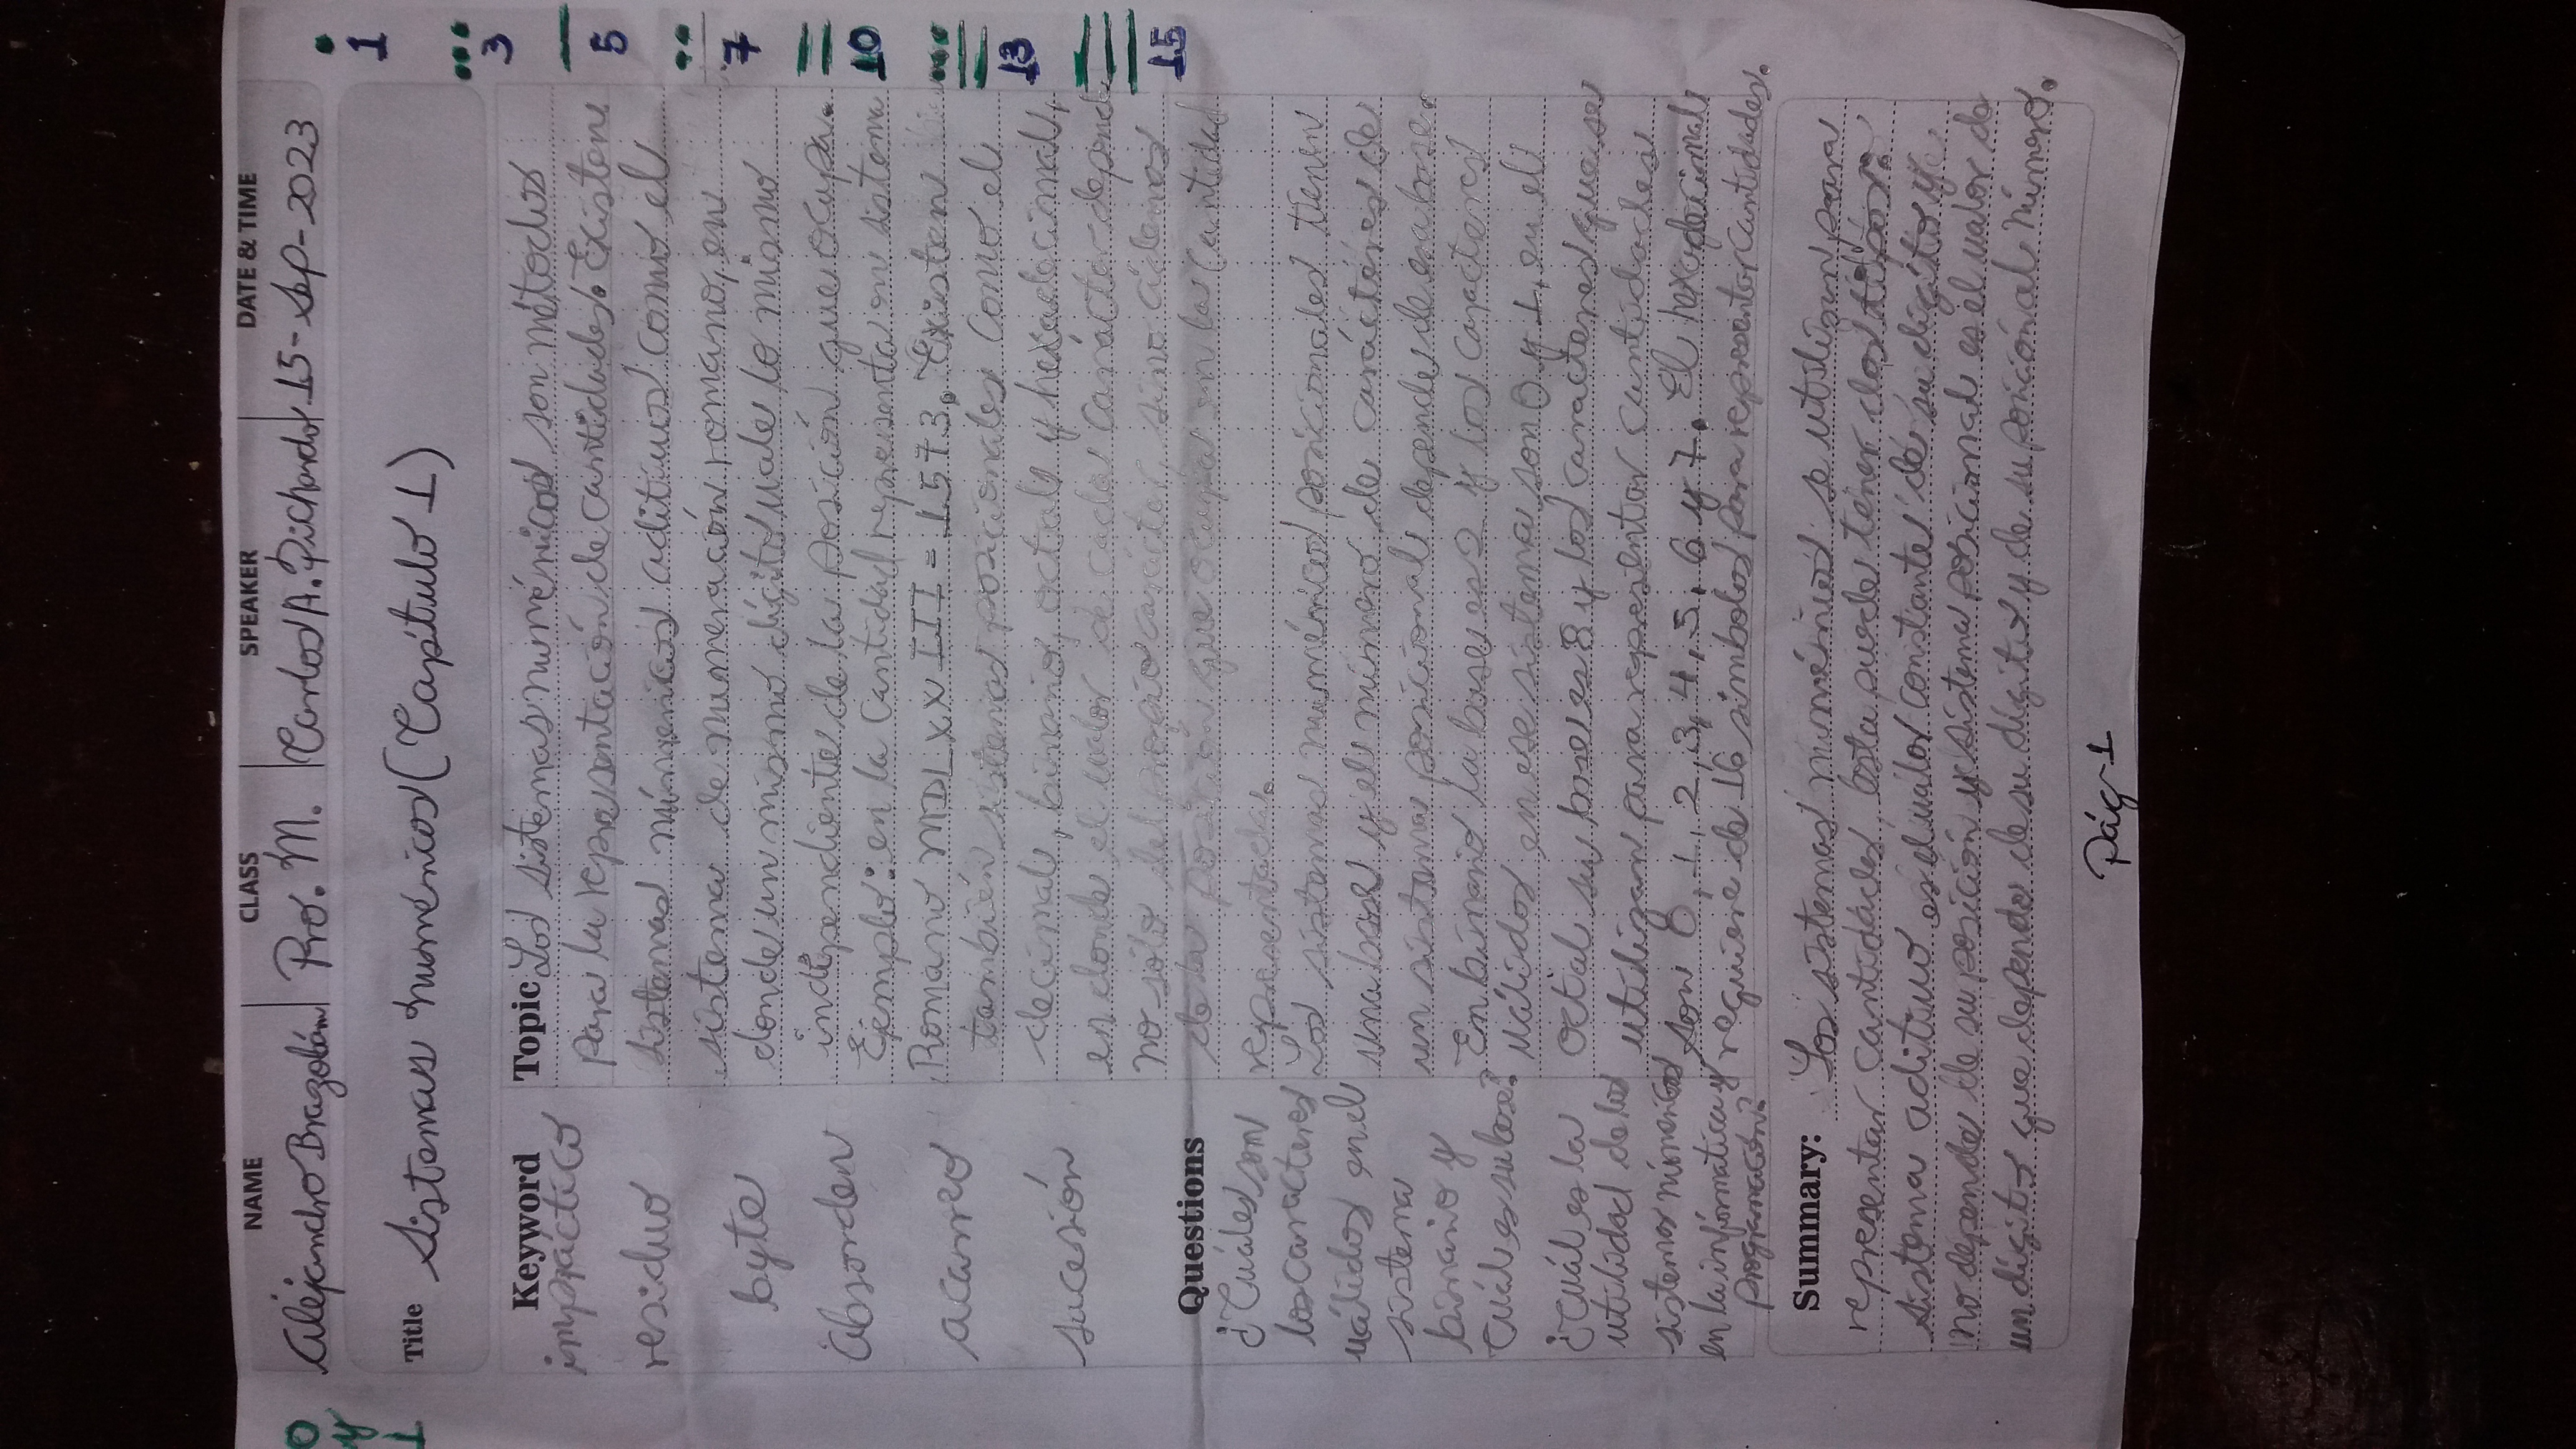 NAME CLASS SPEAKER DATE & TIME
Alejandro Brazobám Pro. M. Carlos A. Pichardo 15-Sep-2023
Title Sistemas numéricos (Capítulo 1)
Keyword
impráctico
residuo
byte
absorden
acarreo
sucesión
Questions
¿Cuáles son
los caracteres
válidos en el
sistema
binario y
cuál es su base?
¿Cuál es la
utilidad de los
sistemas númericos
en la informática y
programación?
Topic Los sistemas numéricos son métodos
para la representación de cantidades. Existen
sistemas númericos aditivos como el
sistema de numeración romano, en
donde un mismo dígito vale lo mismo
independiente de la posición que ocupa.
Ejemplo: en la cantidad representa en sistema
Romano MDLXXIII = 1573. Existen
también sistemas posicionales como el
decimal, binario, octal y hexadecimal,
en donde el valor de cada carácter depende
no sólo del propio carácter, sino ademas
de la posición que ocupa en la cantidad
representada.
Los sistemas numéricos posicionales tienen
una base y el número de carácteres de
un sistema posicional depende de esa base.
En binario la base es 2 y los caracteres
válidos en ese sistema son 0 y 1, en el
octal su base es 8 y los caracteres que se
utilizan para representar cantidades
son 0, 1, 2, 3, 4, 5, 6 y 7. El hexadecimal
requiere de 16 simbolos para representar cantidades.
Summary: Los sistemas numéricos se utilizan para
representar cantidades, esta puede tener dos tipos:
sistema aditivo es el valor constante de su dígito y
no depende de su posición y sistema posicional es el valor de
un dígito que depende de su dígito y de su posición al número.
Pág-1
0
y
1
1
3
5
7
10
13
15